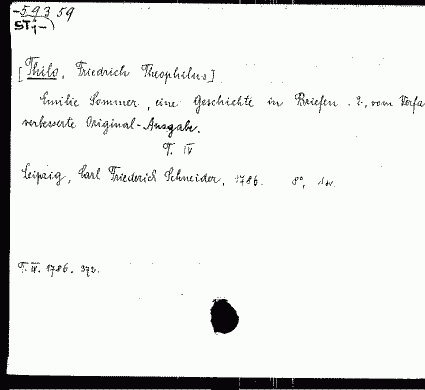 59359
STi-
[Thilo, Friedrich Theophilus]
Emilie Sommer, eine Geschichte in Briefen. 2., vom Verfa
verbesserte Original-Ausgabe.
T. IV
Leipzig, Carl Friederich Schneider, 1786. 8°,
T. IV. 1786. 372.